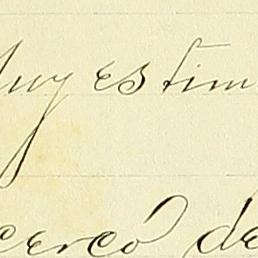 Muy estim
cerco de